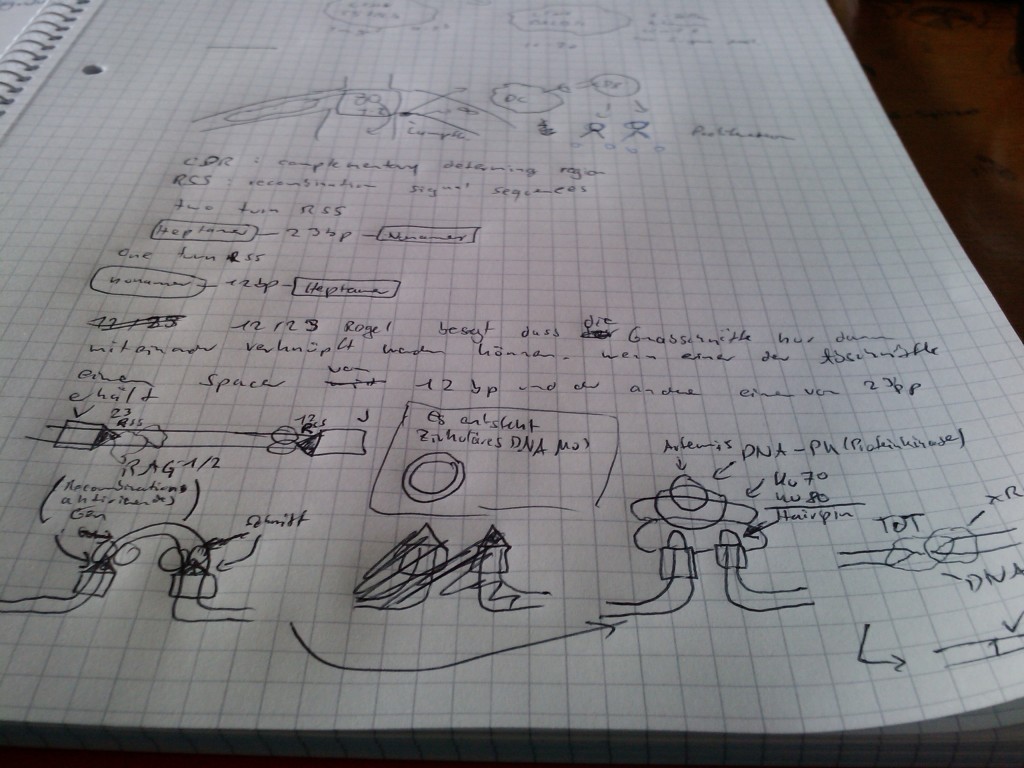 DC
CDR : complementary determining region
RSS : recombination signal sequences
two turn RSS
Heptamer - 23bp - Nonamer
One turn RSS
nonamer - 12bp - Heptamer
12/23 Regel besagt dass die Genabschnitte nur dann
miteinander verknüpft werden können, wenn einer der Abschnitte
einen Spacer von 12 bp und der andere einer von 23bp
erhält
23
RSS
12
RSS
RAG-1/2
(Recombinations
aktivierendes
Gen)
Schnitt
Es entsteht
Zirkuläres DNA Mol
Artemis
DNA-PK (Proteinkinase)
Ku70
Ku80
Hairpin
TDT
XR
DNA